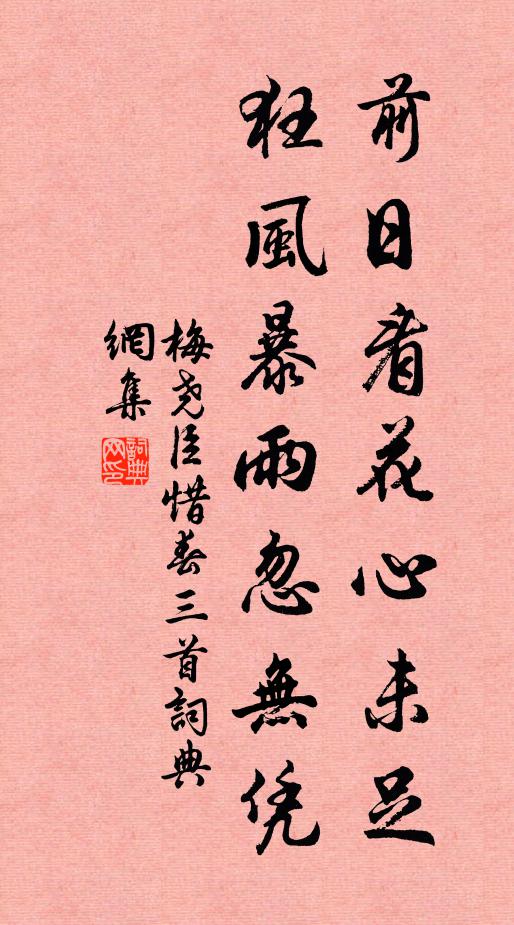 前日看花心未足
狂風暴雨忽無凭
梅尧臣惜春三首詞典
網集
詞典
网印